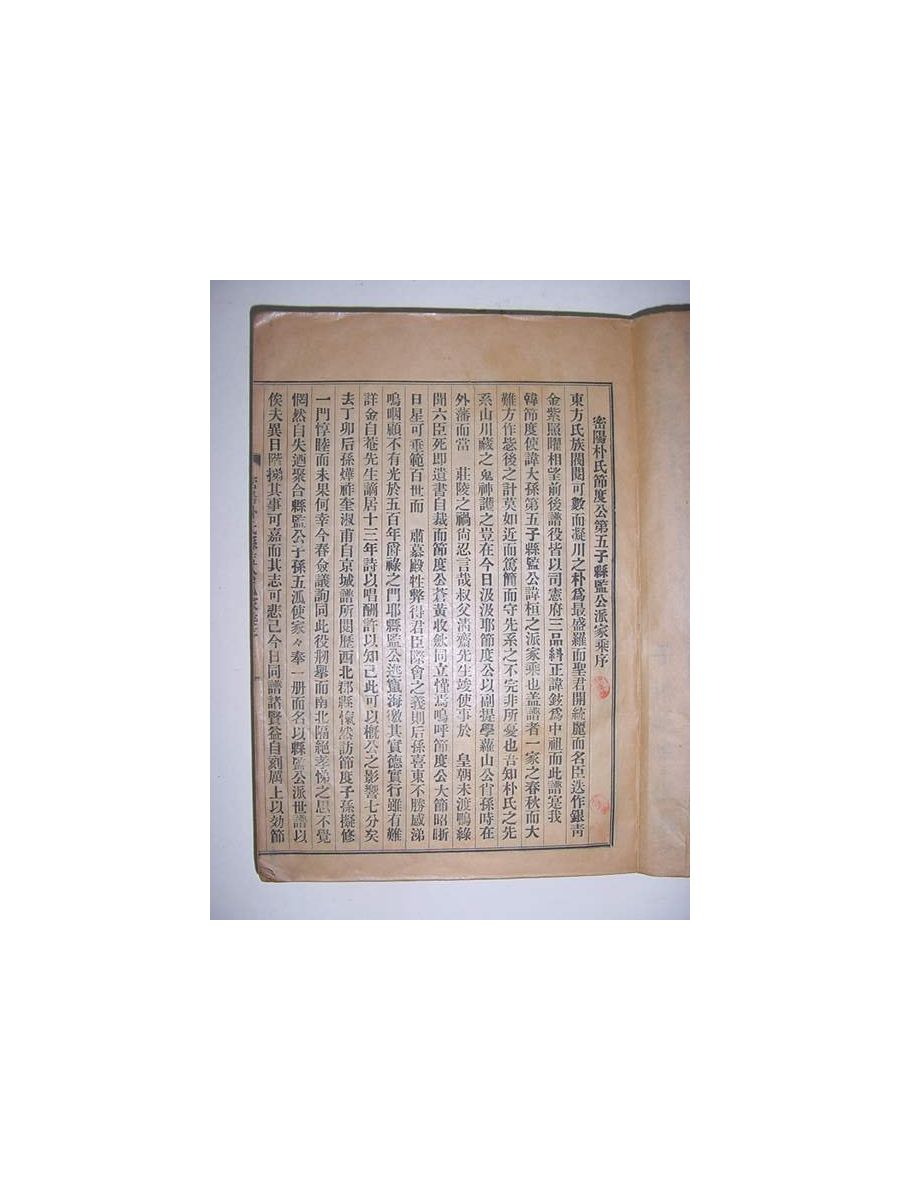 密陽朴氏節度公第五子縣監公派家乘序
東方氏族閥閱可數而凝川之朴爲最盛羅而聖君開統麗而名臣迭作銀靑
金紫照曜相望前後譜役皆以司憲府三品糾正諱鉉爲中祖而此譜寔我
韓節度使諱大孫第五子縣監公諱桓之派家乘也盖譜者一家之春秋而大
難方作宓後之計莫如近而篤簡而守先系之不完非所憂也吾知朴氏之先
系山川藏之鬼神護之豈在今日汲汲耶節度公以副提學蘿山公肖孫時在
外藩而當 莊陵之禍尙忍言哉叔父淸齋先生竣使事於 皇朝未渡鴨綠
聞六臣死卽遺書自裁而節度公蒼黃收斂同立慬焉嗚呼節度公大節昭晣
日星可垂範百世而 肅慕殿牲幣得君臣際會之義則后孫喜東不勝感涕
嗚咽顧不有光於五百年爵祿之門耶縣監公逃竄海徼其實德實行雖有難
詳金自菴先生謫居十三年詩以唱酬許以知己此可以槪公之影響七分矣
去丁卯后孫燁祚奎淑甫自京城譜所閱歷西北郡縣愾然訪節度子孫擬修
一門惇睦而未果何幸今春僉議詢同此役刱擧而南北隔絶孝悌之思不覺
惘然自失迺聚合縣監公子孫五派使家々奉一册而名以縣監公派世譜以
俟夫異日階梯其事可嘉而其志可悲已今日同譜諸賢益自刻厲上以効節